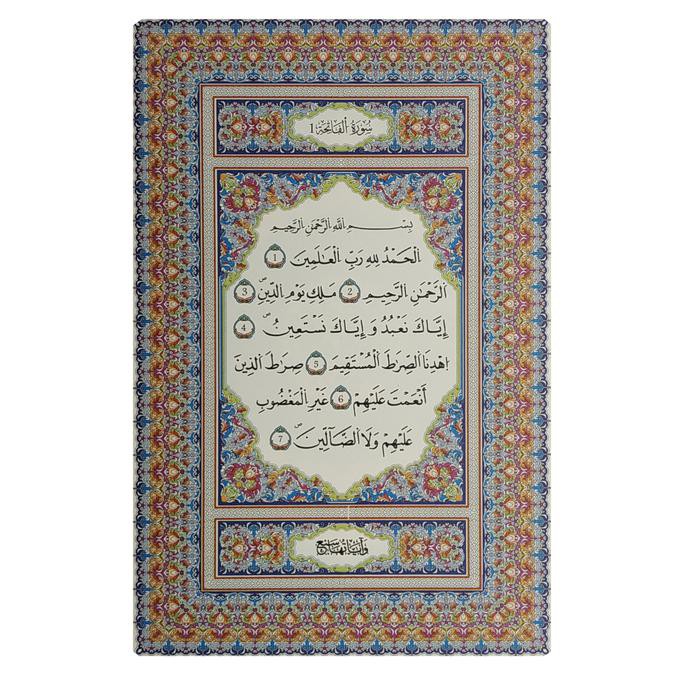 سُورَةُ الْفَاتِحَةِ 1
بِسْمِ اللَّهِ الرَّحْمٰنِ الرَّحِيمِ
الْحَمْدُ لِلَّهِ رَبِّ الْعَالَمِينَ 1
الرَّحْمٰنِ الرَّحِيمِ 2 مَلِكِ يَوْمِ الدِّينِ 3
إِيَّاكَ نَعْبُدُ وَ إِيَّاكَ نَسْتَعِينُ 4
اِهْدِنَا الصِّرَاطَ الْمُسْتَقِيمَ 5 صِرَاطَ الَّذِينَ
أَنْعَمْتَ عَلَيْهِمْ 6 غَيْرِ الْمَغْضُوبِ
عَلَيْهِمْ وَلَا الضَّآلِّينَ 7
وَآيَاتُهَا سَبْعٌ